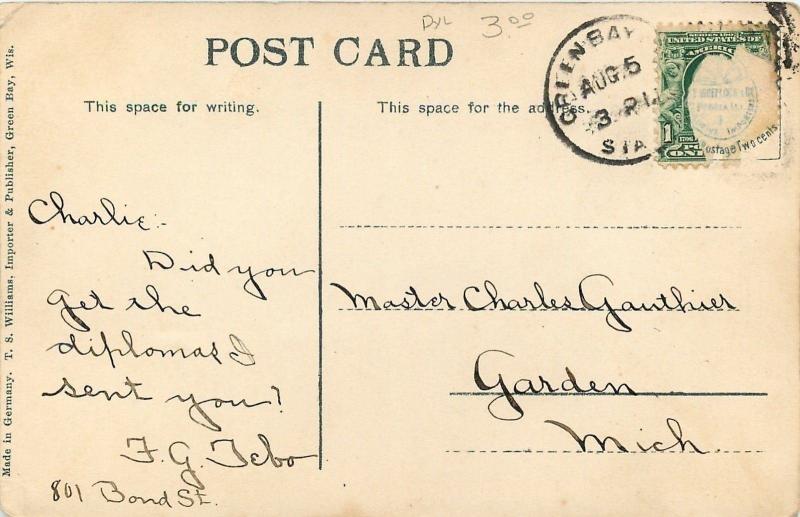 Pyl 3.00
POST CARD
This space for writing.
This space for the address.
GREEN BAY
AUG. 5
3-
STA
SERIES 190
UNITED STATES OF
AMERIC
1
ONE
Postage Two cents
Charlie:-
Did you
get the
diplomas I
sent you?
F. G. Tebo
801 Bond St.
Master Charles Gauthier
Garden
Mich.
Made in Germany. T. S. Williams, Importer & Publisher, Green Bay, Wis.